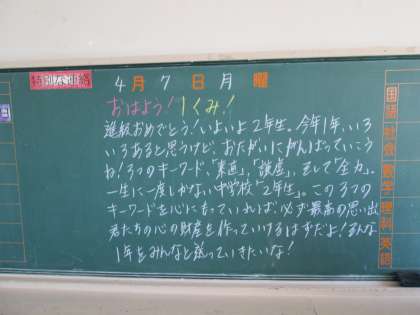 特別室連絡
4月7日月曜
おはよう!1くみ!
進級おめでとう!いよいよ2年生。今年1年、いろ
いろあると思うけど、おたがいにがんばっていこう
ね!3つのキーワード、「素直」、「謙虚」、そして「全力」、
一生に一度しかない中学校「2年生」。この3つの
キーワードを心にもっていれば、必ず最高の思い出
君たちの心の財産を作っていけるはずだよ!そんな
1年をみんなと送っていきたいな!
国語
社会
数学
理科
英語